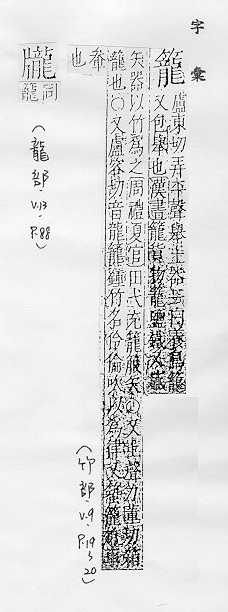 字彙
籠
盧東切弄平聲舉土器鳥籠
又包舉也漢書籠貨物籠鹽鐵又盛
矢器以竹爲之周禮夏官田弋充籠箙矢○又上聲力董切箱
籠也○又盧容切音龍籠鐘竹名伶倫吹以爲律又
也
(竹部·V.9·P.19 20)
同
籠
(龍部·V.13·P.88)